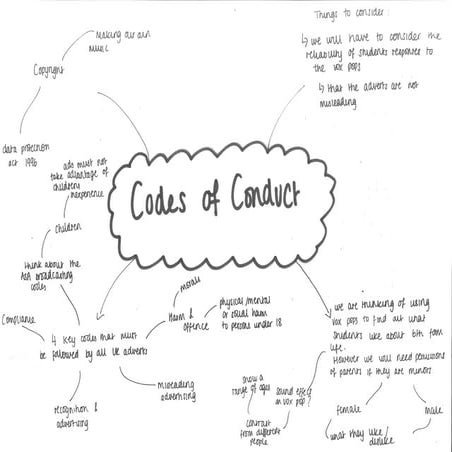 Codes of Conduct
making our own
music
Copyright
data protection
act 1996
ads must not
take advantage of
childrens
inexperience
children
think about the
ASA broadcasting
codes
Compliance
4 key codes that must
be followed by all UK adverts
recognition &
advertising
misleading
advertising
Harm &
offence
morals
physical/mental
or social harm
to persons under 18
Things to consider:
↳ we will have to consider the
reliability of students responses to
the vox pops
↳ that the adverts are not
misleading
we are thinking of using
vox pops to find out what
students like about 6th form
life.
However we will need permissions
of parents if they are minors
female
male
what they like/
dislike
show a
range of ages
sound effects
in vox pop?
contrast
from different
people